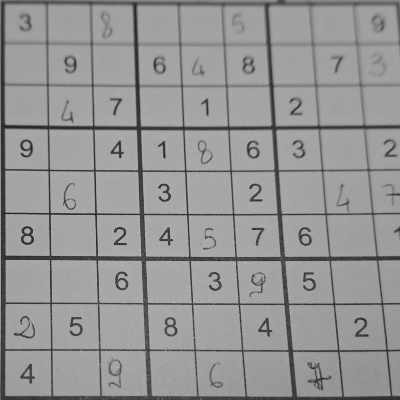 3 8 5 9
9 6 4 8 7 3
4 7 1 2
9 4 1 8 6 3 2
6 3 2 4 7
8 2 4 5 7 6 1
6 3 9 5
2 5 8 4 2
4 9 6